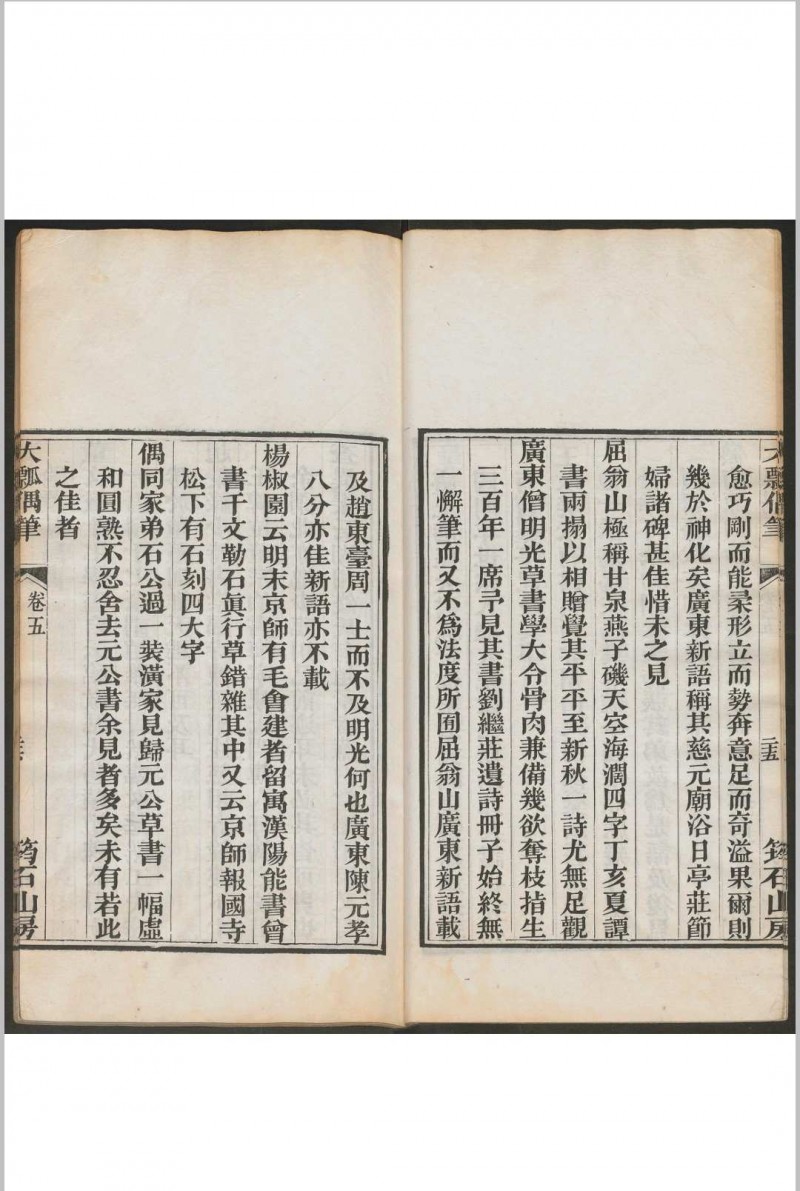 大瓢偶筆
筠石山房
愈巧剛而能柔形立而勢奔意足而奇溢果爾則
幾於神化矣廣東新語稱其慈元廟浴日亭莊節
婦諸碑甚佳惜未之見
屈翁山極稱甘泉燕子磯天空海濶四字丁亥夏譚
書兩搨以相贈覺其平平至新秋一詩尤無足觀
廣東僧明光草書學大令骨肉兼備幾欲奪枝指生
三百年一席予見其書劉繼莊遺詩冊子始終無
一懈筆而又不爲法度所囿屈翁山廣東新語載
及趙東臺周一士而不及明光何也廣東陳元孝
八分亦佳新語亦不載
楊椒園云明末京師有毛會建者留寓漢陽能書曾
書千文勒石眞行草錯雜其中又云京師報國寺
松下有石刻四大字
偶同家弟石公過一裝潢家見歸元公草書一幅虛
和圓熟不忍舍去元公書余見者多矣未有若此
之佳者
大瓢偶筆
卷五
筠石山房